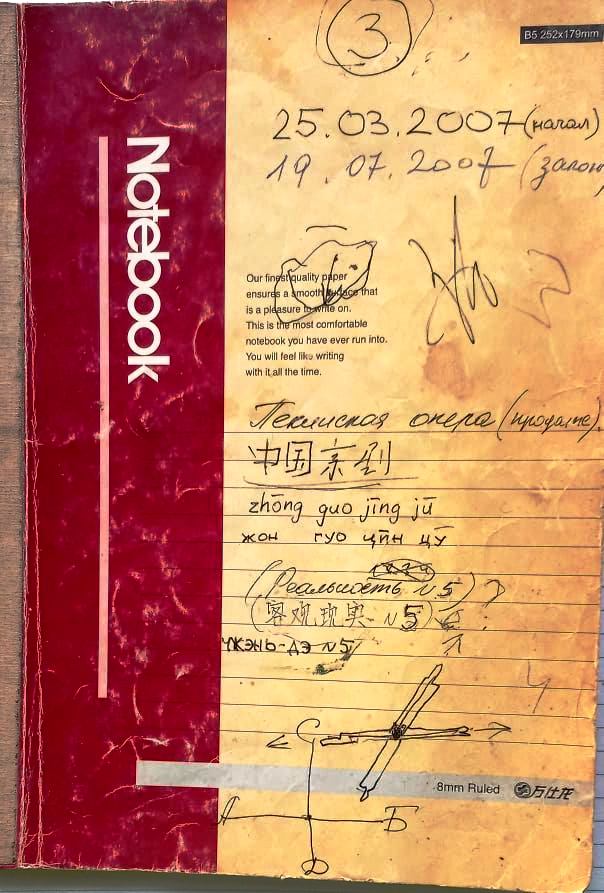 3
B5 252x179mm
25.03.2007 (начал)
19.07.2007
Notebook
Our finest quality paper
ensures a smooth surface that
is a pleasure to write on.
This is the most comfortable
notebook you have ever run into.
You will feel like writing
with it all the time.
Пекинская опера
中国京剧
zhōng guo jīng jū
жон гуо цйн цу
(Реальность №5)
(客观现实 №5)
ЧЖЭНЬ-ДЭ №5
C
8mm Ruled 万仕龙
А Б
D